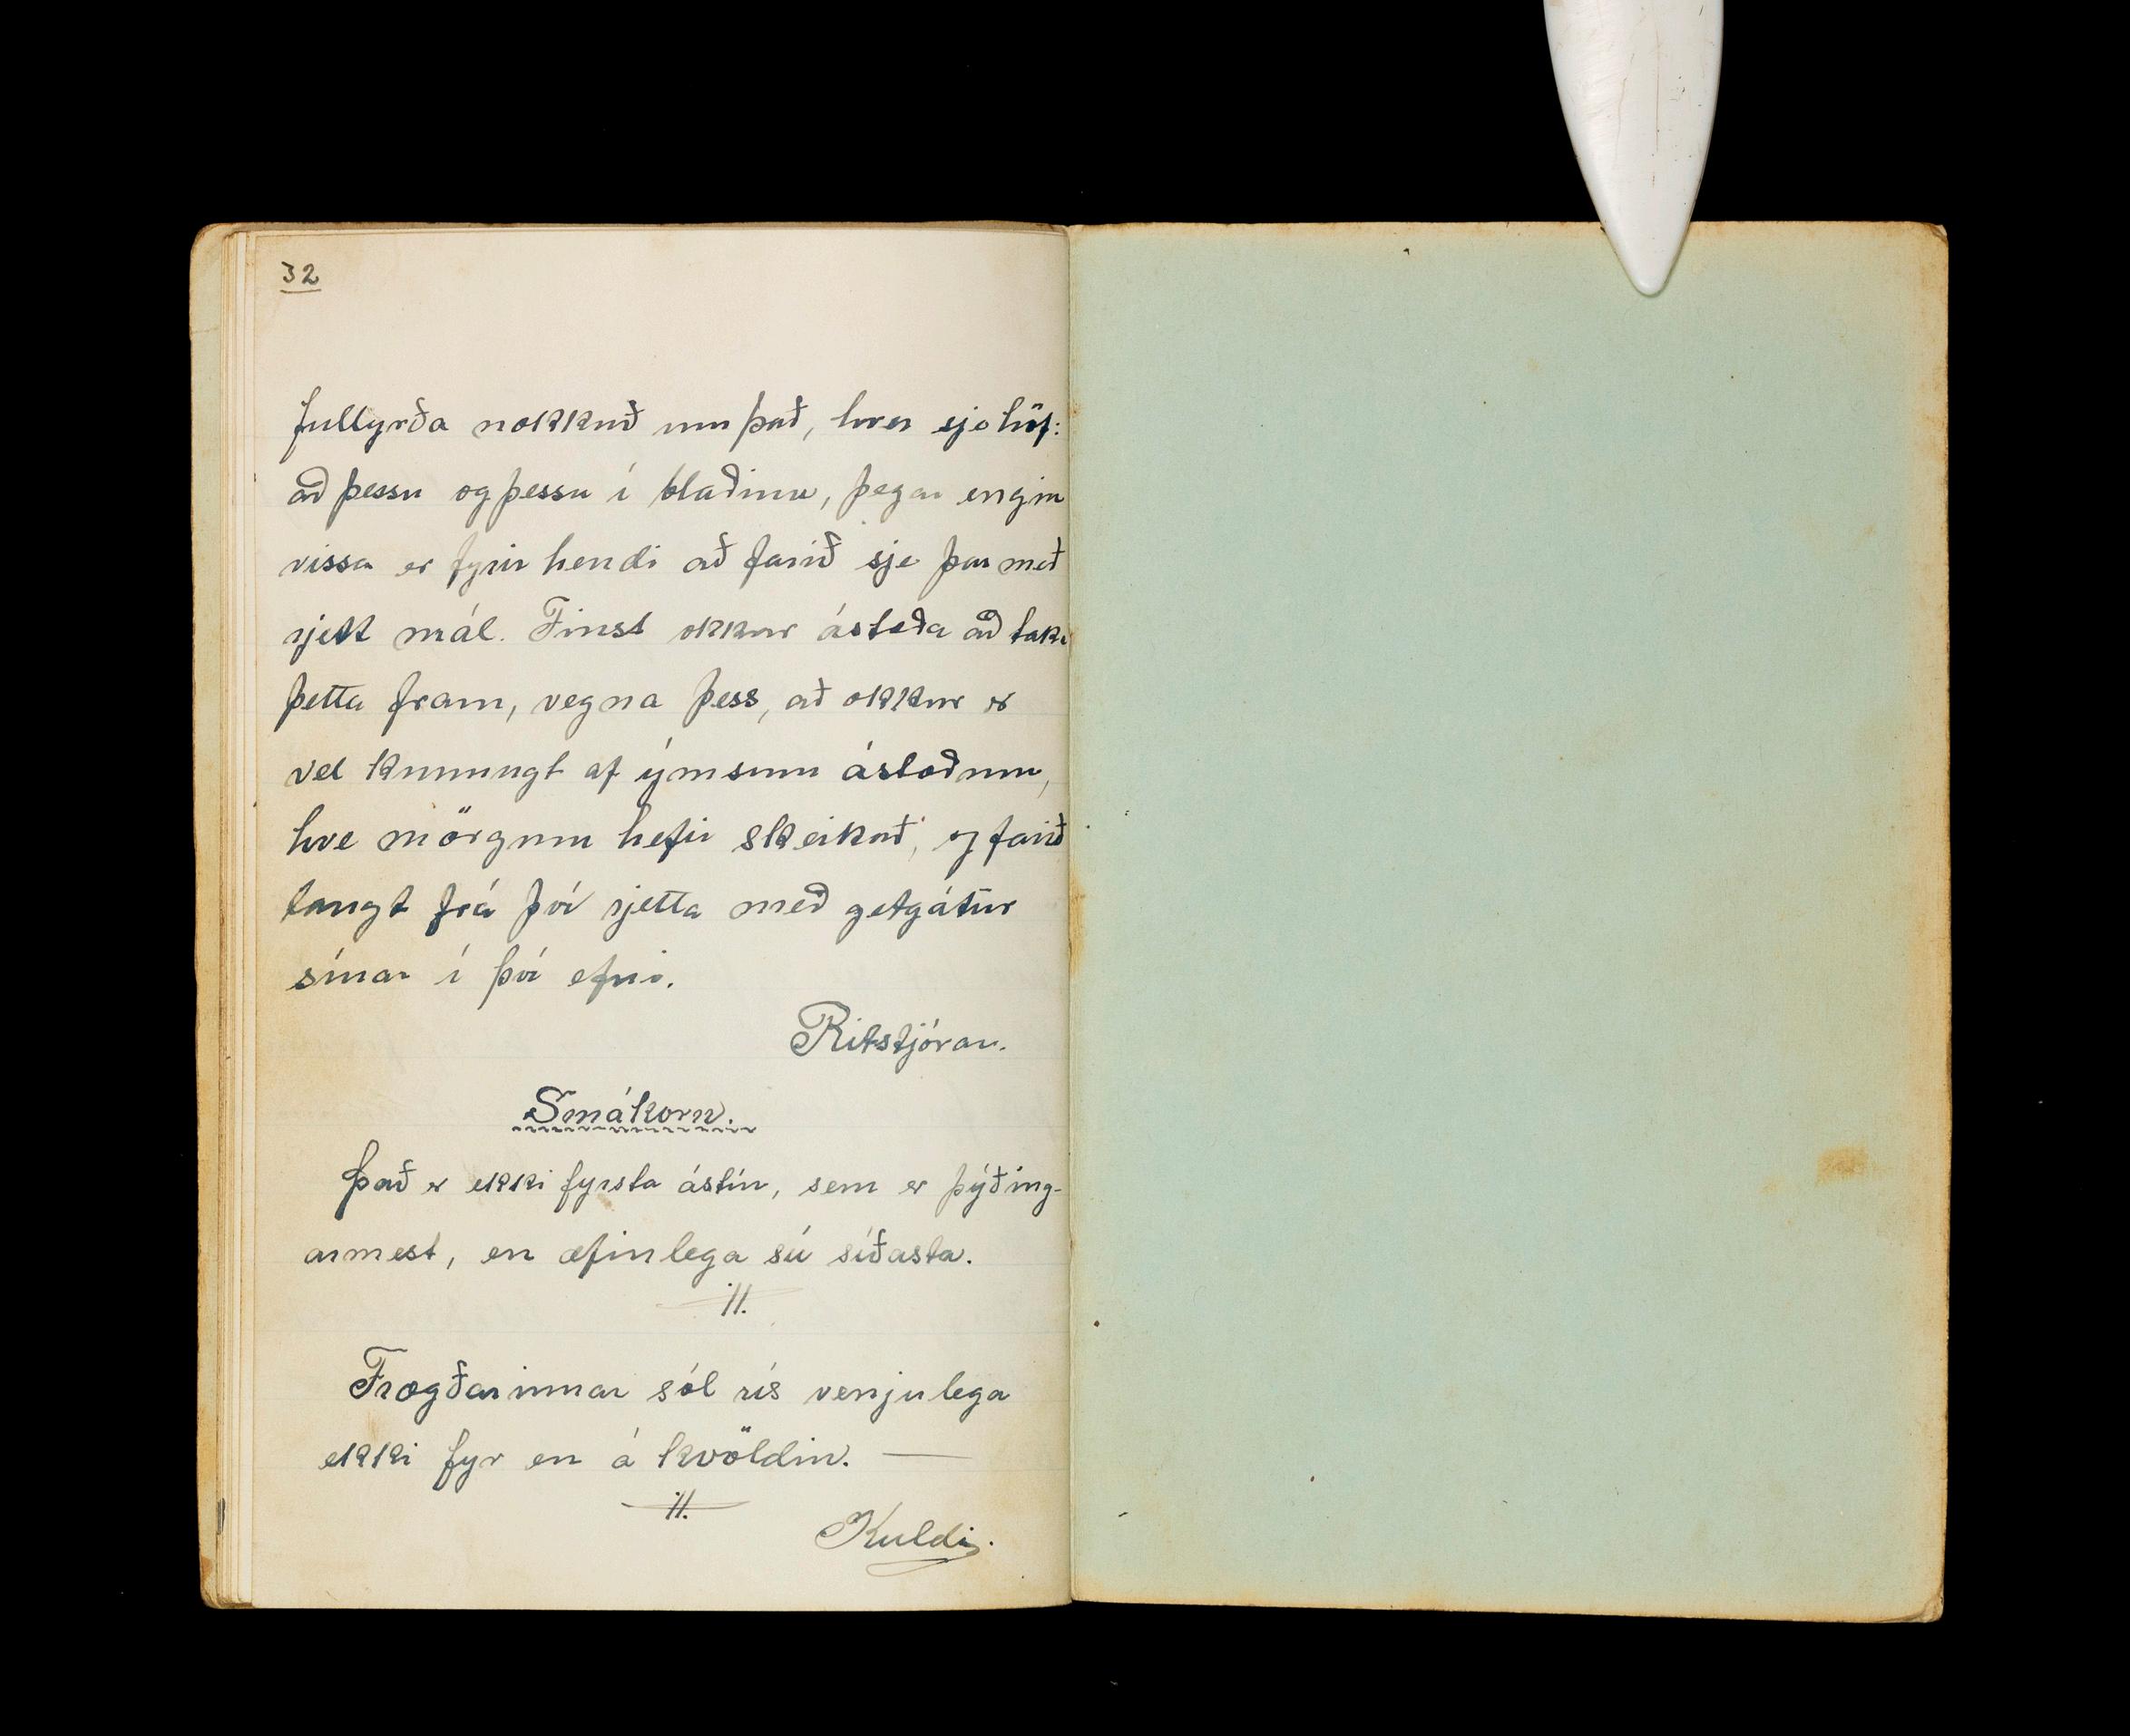 32
fullyrða nokkuð um það, hver sje höf:
að þessu og þessu í blaðinu, þegar engin
vissa er fyrir hendi að farið sje þar með
rjett mál. Finst okkur ásteða að taka
þetta fram, vegna þess, að okkur er
vel kunnugt af ýmsum áslóðum,
hve mörgum hefir skeikað, og farið
langt frá því rjetta með getgátur
sínar í því efni.
Ritstjórar.
Smákorn.
Það er ekki fyrsta ástin, sem er þýðing-
armest, en æfinlega sú síðasta.
Frægðarinnar sól rís venjulega
ekki fyr en á kvöldin. —
Kuldi.